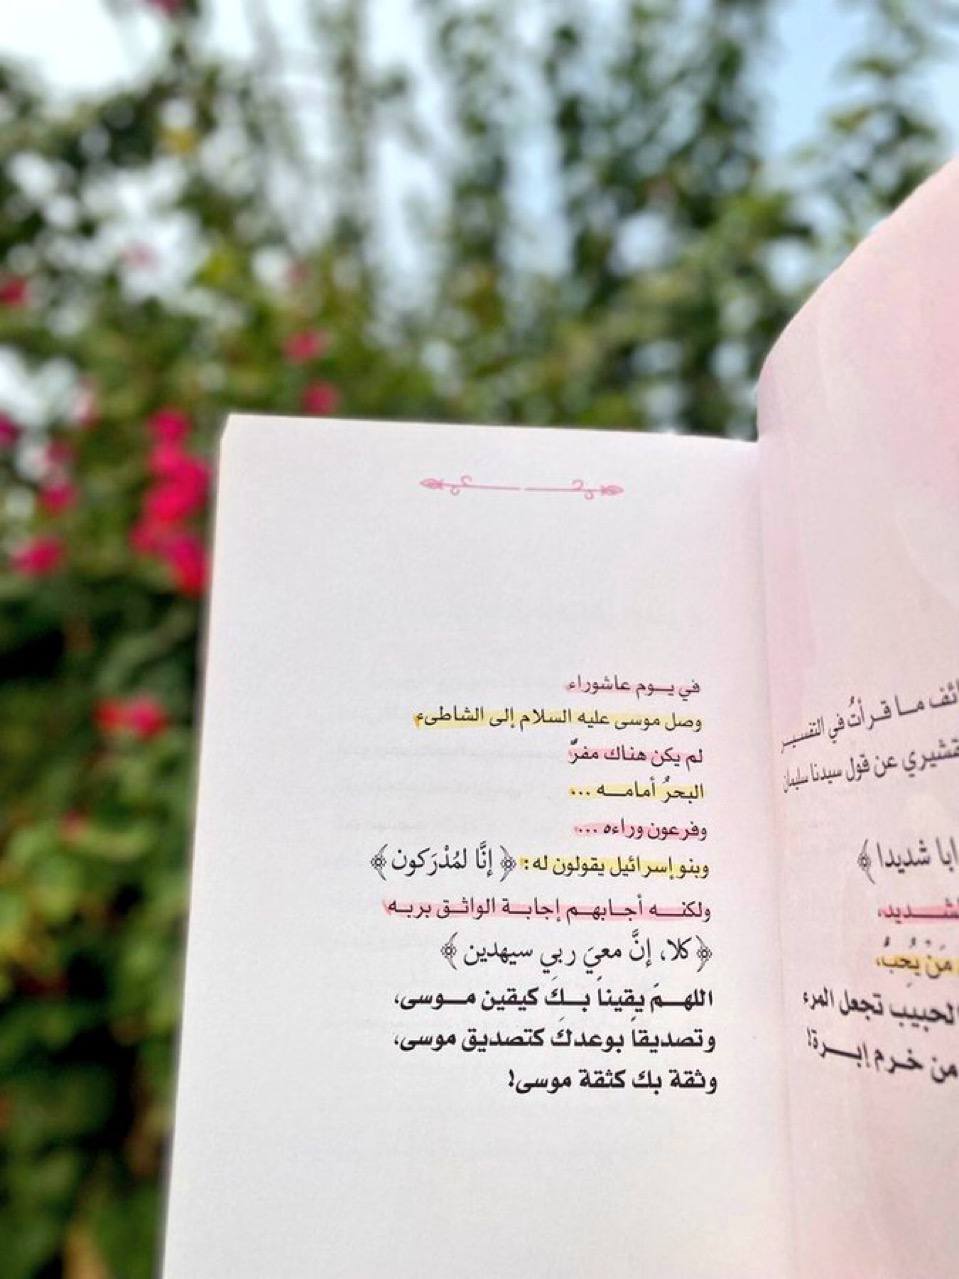 في يوم عاشوراء
وصل موسى عليه السلام إلى الشاطىء
لم يكن هناك مفرٌّ
البحرُ أمامه ...
وفرعون وراءه ...
وبنو إسرائيل يقولون له: ﴿إنَّا لمُدْرَكون﴾
ولكنه أجابهم إجابة الواثق بربه
﴿كلا، إنَّ معيَ ربي سيهدين﴾
اللهمَ يقيناً بكَ كيقين موسى،
وتصديقاً بوعدكَ كتصديق موسى،
وثقة بك كثقة موسى!
ما قرأتُ في التفسير
عن قول سيدنا سليمان
شديدا﴾
مَنْ يُحِبُّ،
الحبيب تجعل المرء
من خرم إبرة!